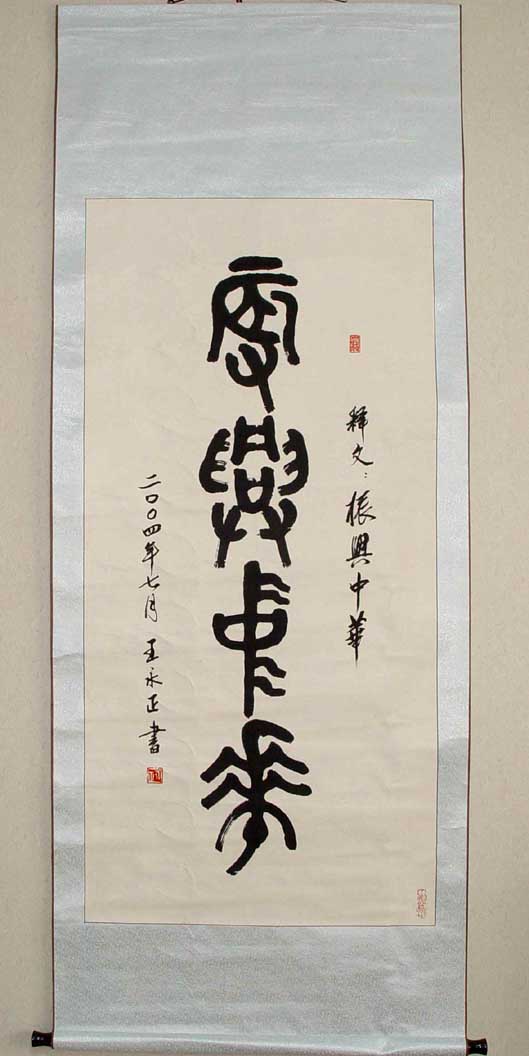 释文:振興中華
振興中華
二〇〇四年七月 王永正書